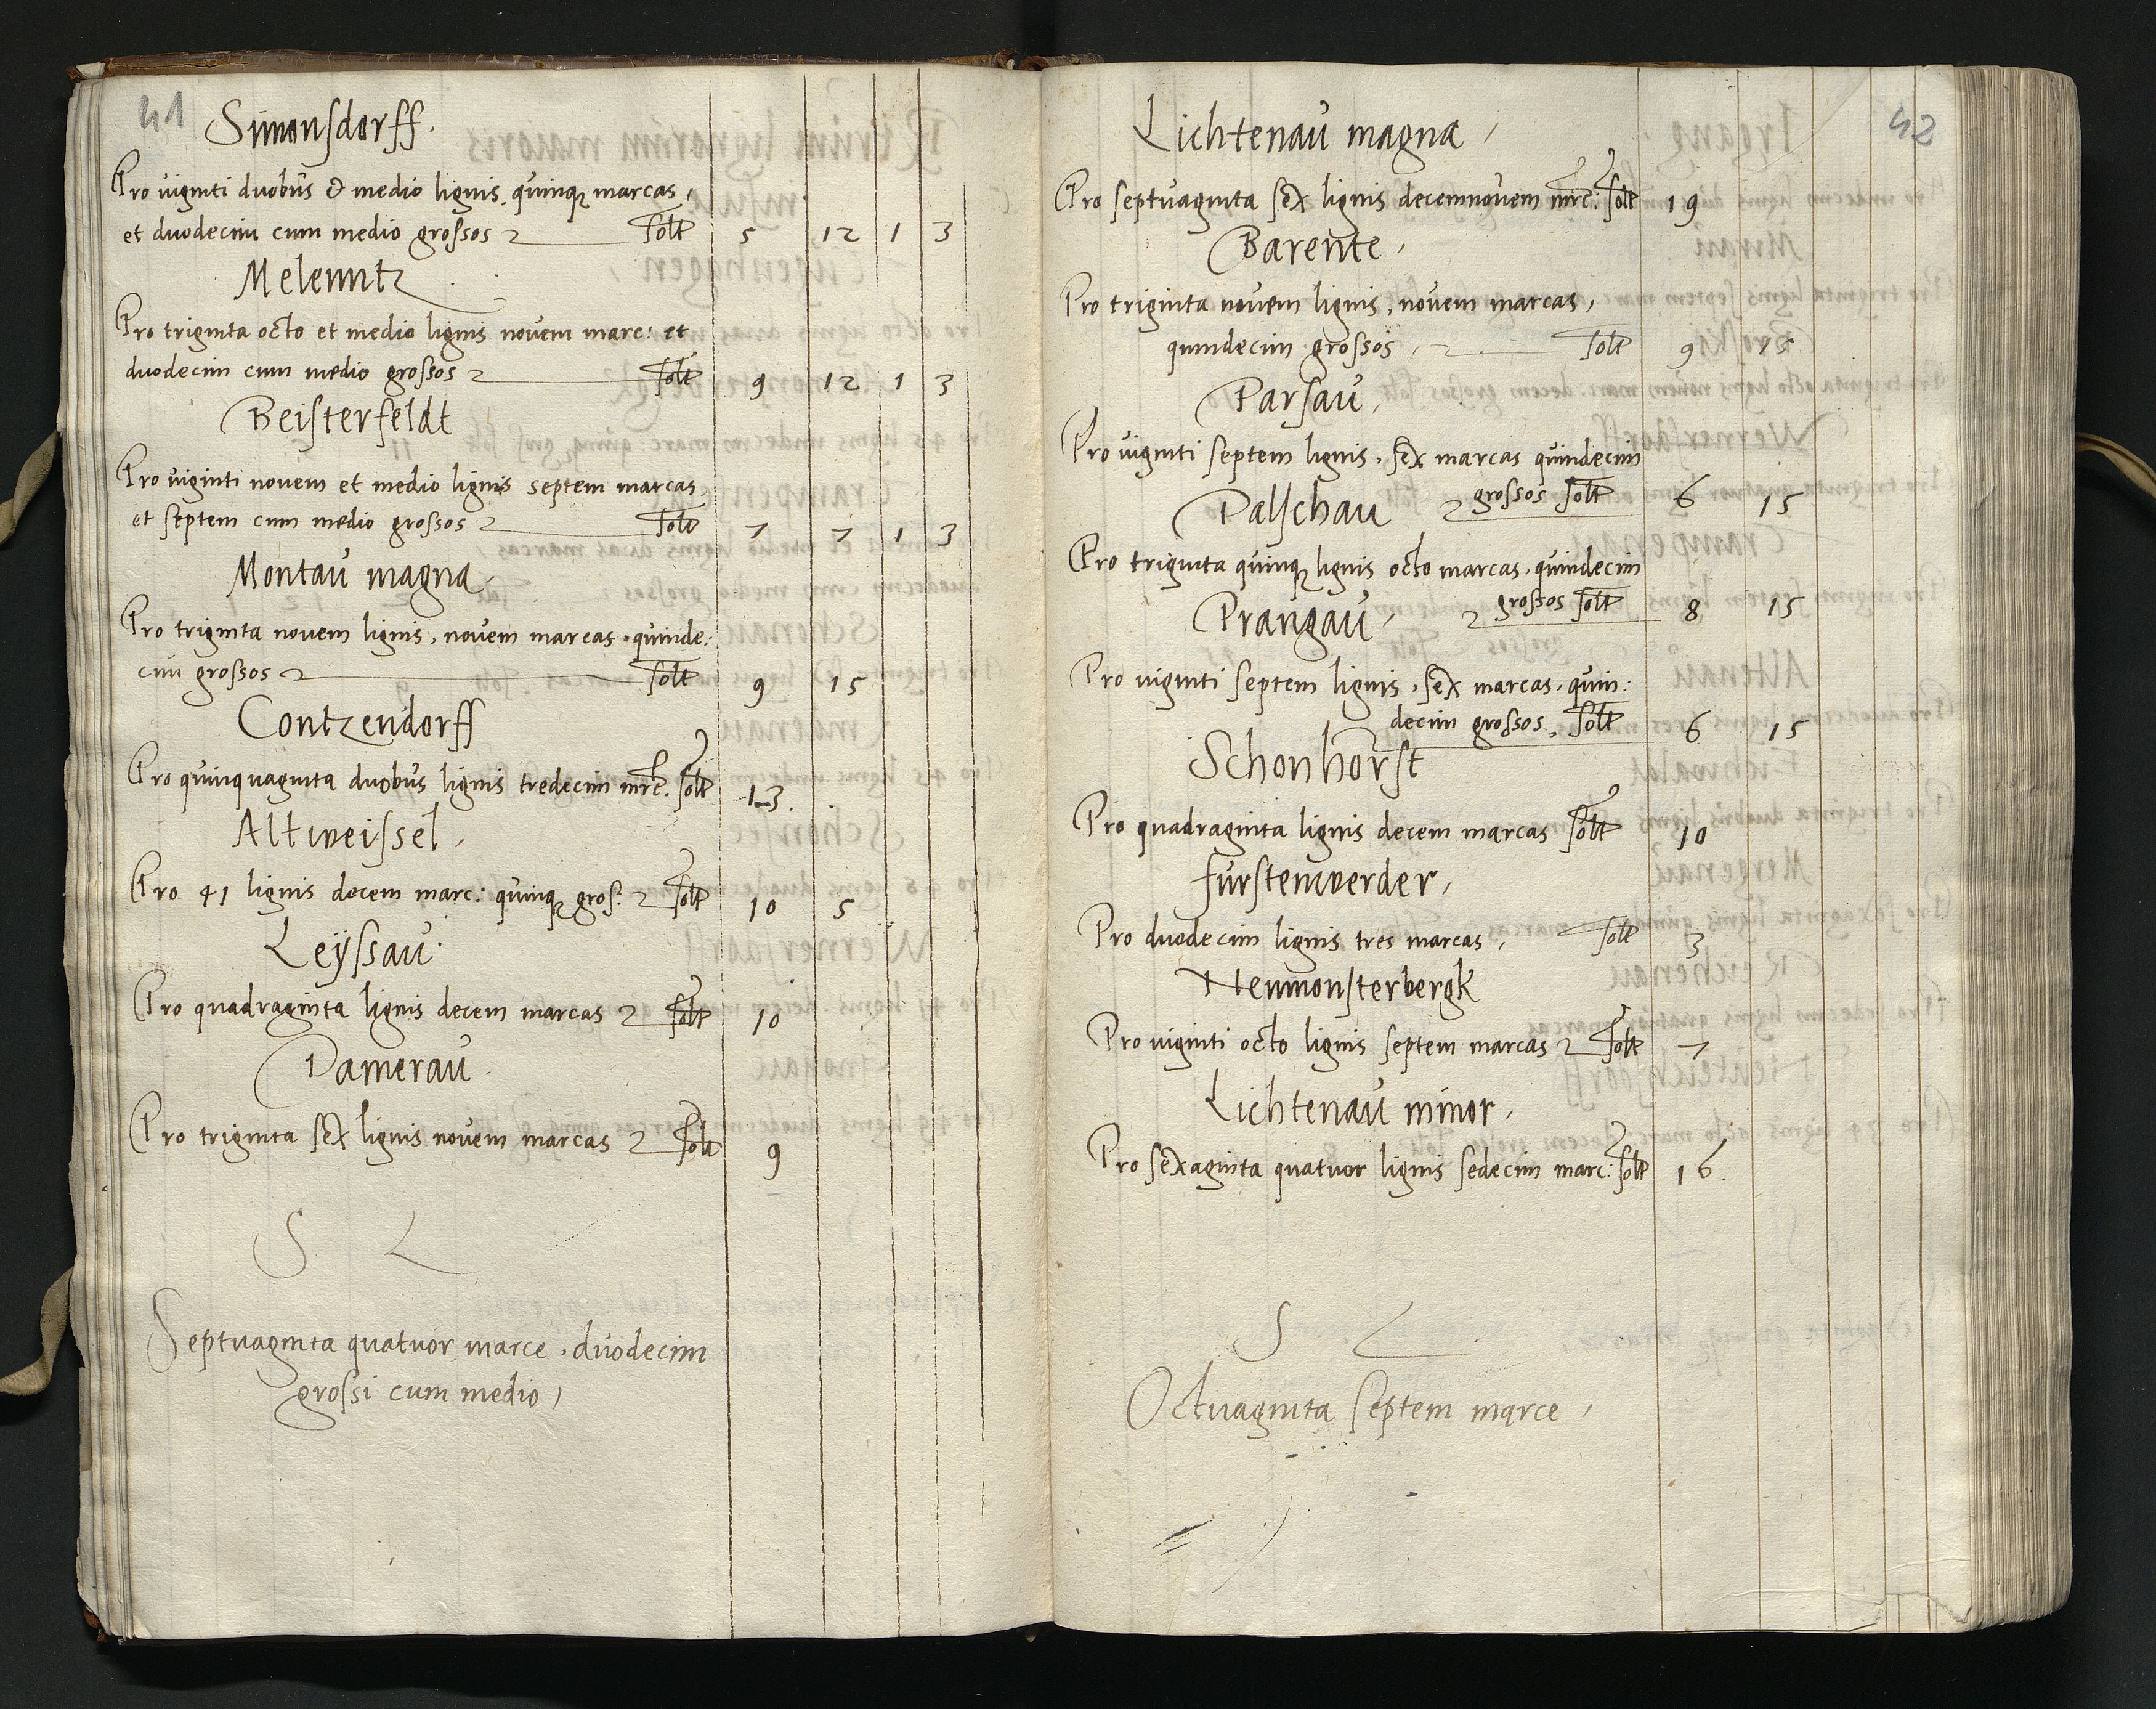 41
Simonsdorff.
Pro viginti duobus & medio lignis. quinq marcas,
et duodecim cum medio grossos solt 5 12 1 3
Melenntz
Pro triginta octo et medio lignis novem marc: et
duodecim cum medio grossos solt 9 12 1 3
Beisterfeldt
Pro viginti novem et medio lignis septem marcas
et septem cum medio grossos solt 7 7 1 3
Montau magna
Pro triginta novem lignis, novem marcas, quinde:
cim grossos solt 9 15
Contzendorff
Pro quinquaginta duobus lignis tredecim mrc. solt 13.
Altweissel,
Pro 41 lignis decem marc: quinq gros: solt 10 5
Leÿssau
Pro quadraginta lignis decem marcas solt 10
Damerau
Pro triginta sex lignis novem marcas solt 9
S L
Septuaginta quatuor marce, duodecim
grossi cum medio,
42
Lichtenau magna,
Pro septuaginta sex lignis decemnovem mrc: solt 19
Barente,
Pro triginta novem lignis, novem marcas,
quindecim grossos, solt 9 15
Parsau,
Pro viginti septem lignis, sex marcas quindecim
grossos solt 6 15
Palschau
Pro triginta quinq lignis octo marcas, quindecim
grossos solt 8 15
Prangau,
Pro viginti septem lignis, sex marcas, quin:
decim grossos, solt 6 15
Schonhorst
Pro quadraginta lignis decem marcas solt 10
furstenwerder,
Pro duodecim lignis tres marcas, solt 3
Neumonsterbergk
Pro viginti octo lignis septem marcas solt 7
Lichtenau minor,
Pro sexaginta quatuor lignis sedecim marc: solt 16.
S L
Octuaginta septem marce,